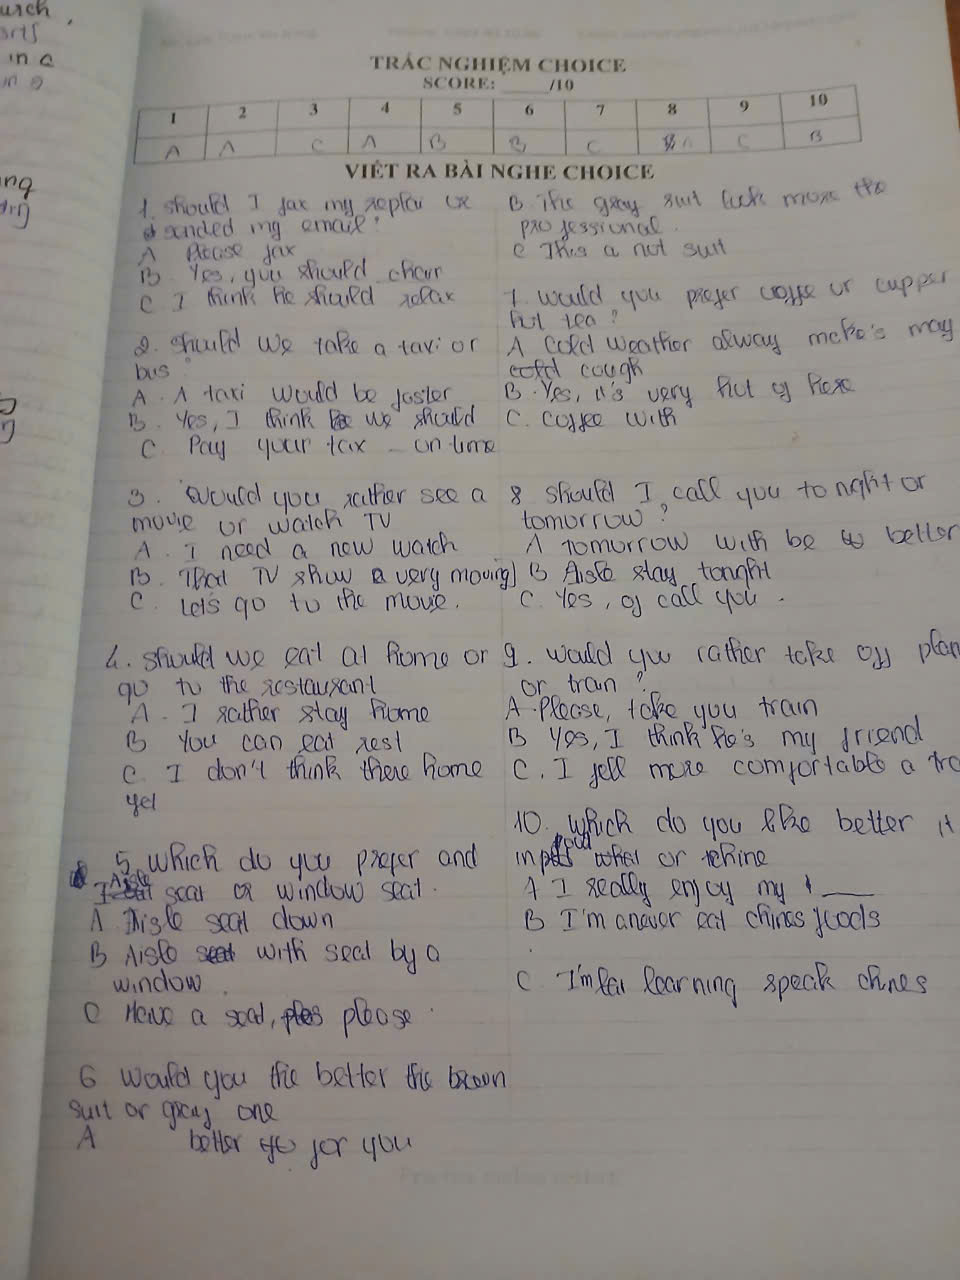 TRẮC NGHIỆM CHOICE
SCORE: _____/10
1 2 3 4 5 6 7 8 9 10
A A C A B B C A C B
VIẾT RA BÀI NGHE CHOICE
1. Should I fax my or
sended my email?
A Please fax
B. Yes, you should chair
C. I think he should relax
2. Should we take a taxi or
bus?
A. A taxi would be faster
B. Yes, I think we should
C. Pay your tax on time
3. Would you rather see a
movie or watch TV
A. I need a new watch
B. That TV show a very moving
C. Let's go to the movie.
4. Should we eat at home or
go to the restaurant
A. I rather stay home
B You can eat rest
C. I don't think there home
yet
5. Which do you prefer and
Aisle seat or window seat.
A Thisle seat down
B Aisle with seat by a
window.
C Have a seat, please.
6 Would you the better the brown
suit or gray one
A better for you
B. The gray suit look more the
professional.
C This a not suit
7. Would you prefer coffe or cupper
hot tea?
A Cold weather alway make's may
cold cough
B. Yes, it's very hot of here
C. Coffee with
8 Should I call you to night or
tomorrow?
A Tomorrow with be better
B Aisle stay tonght
C. Yes, of call you.
9. Would you rather take off plan
or train?
A. Please, take you train
B Yes, I think he's my friend
C. I fell more comfortable a tra
10. Which do you like better it
food or chine
A I really enjoy my ____
B I'm anever eat chines foods
C. learning speak chines